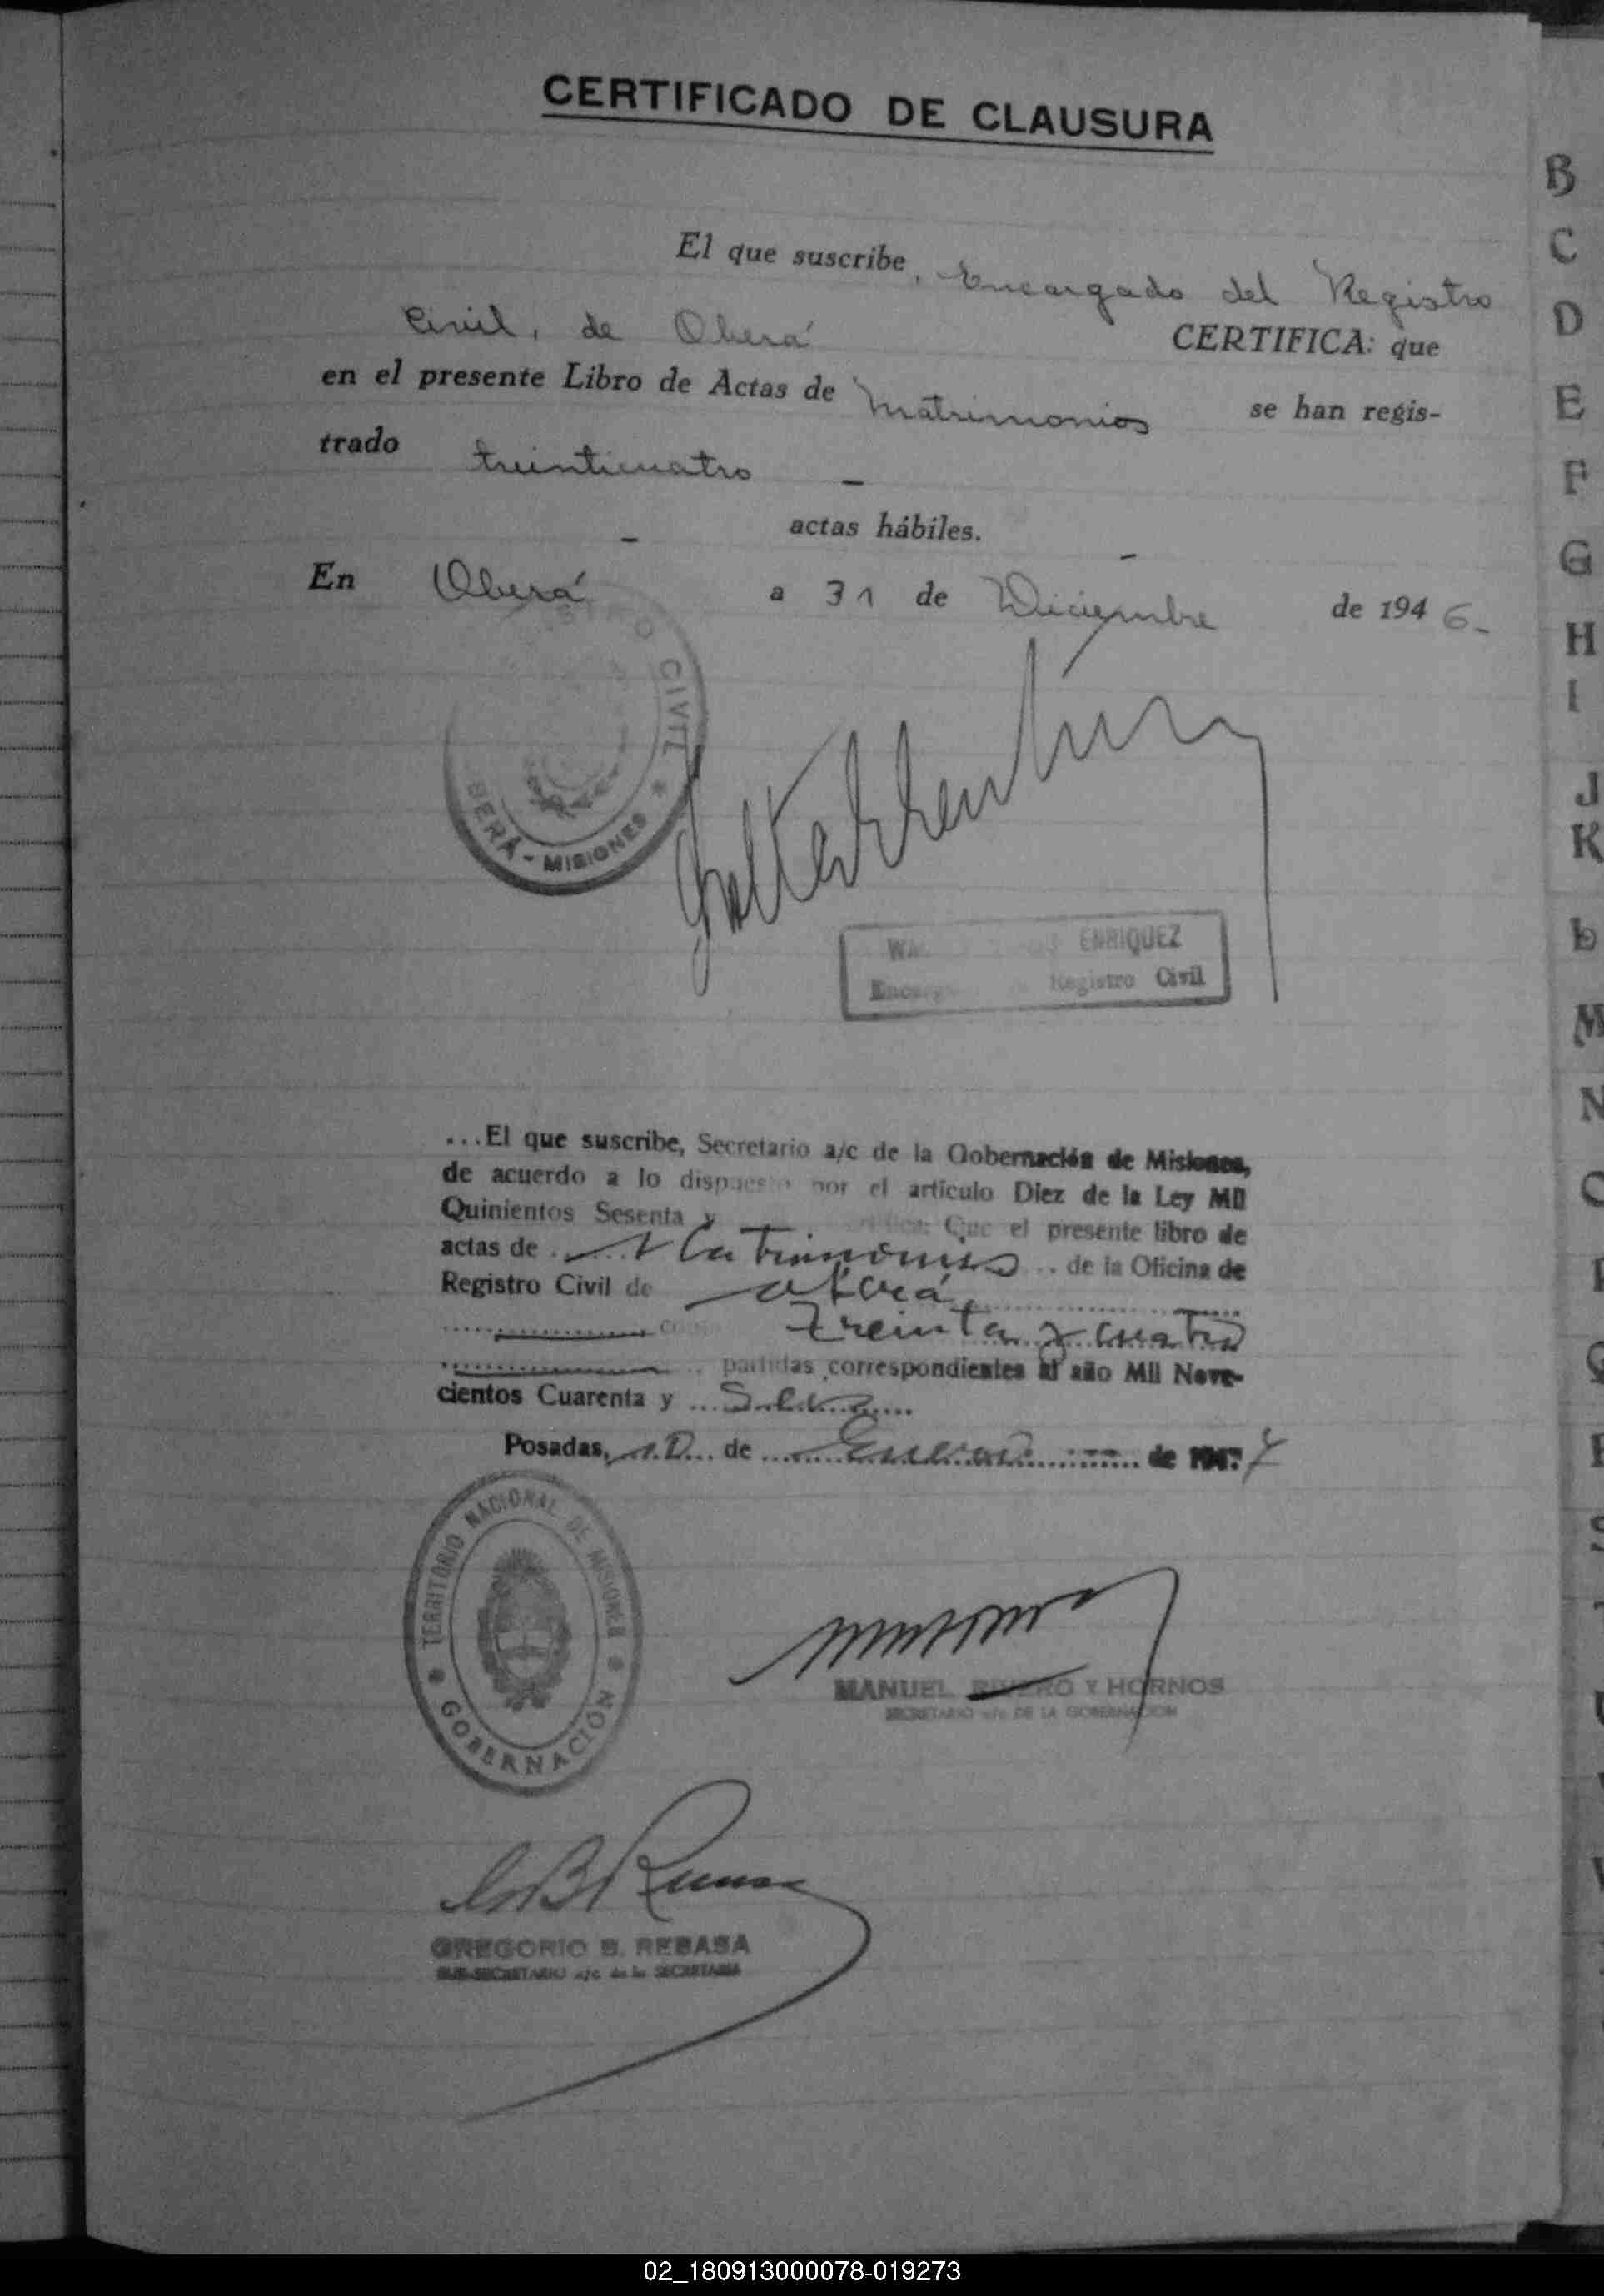 CERTIFICADO DE CLAUSURA
El que suscribe, Encargado del Registro
Civil, de Oberá CERTIFICA: que
en el presente Libro de Actas de Matrimonios se han regis-
trado treinticuatro —
— actas hábiles. —
En Oberá a 31 de Diciembre de 1946.-
CIVIL
BERÁ - MISIONES *
ENRIQUEZ
Registro Civil
...El que suscribe, Secretario a/c de la Gobernación de Misiones,
de acuerdo a lo dispuesto por el artículo Diez de la Ley Mil
Quinientos Sesenta y Que el presente libro de
actas de Matrimonios de la Oficina de
Registro Civil de Oberá
Treinta y cuatro
partidas correspondientes al año Mil Nove-
cientos Cuarenta y Seis
Posadas, 10 de Enero de 1947
* TERRITORIO NACIONAL DE MISIONES *
GOBERNACIÓN
MANUEL RIVERO Y HORNOS
SECRETARIO a/c DE LA GOBERNACION
GREGORIO B. REBASA
SUB-SECRETARIO a/c de la SECRETARIA
B
C
D
E
F
G
H
I
J
K
L
M
N
02_180913000078-019273